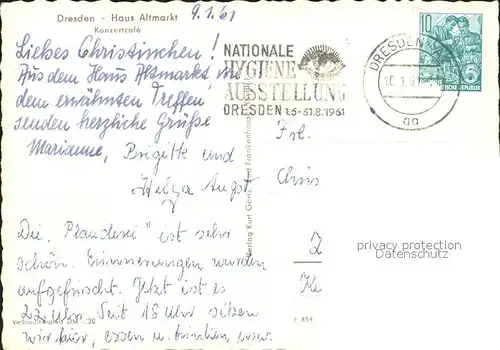 Dresden - Haus Altmarkt
Konzertcafé
9.1.61
Liebes Christinchen!
Aus dem Haus Altmarkt, von
dem erwähnten Treffen
senden herzliche Grüße
Marianne, Brigitte und
Helga Angst
Die "Plauderei" ist sehr
schön. Erinnerungen wurden
aufgefrischt. Jetzt ist es
22 Uhr. Seit 18 Uhr sitzen
wir hier, essen u. trinken, usw.
NATIONALE
HYGIENE
AUSSTELLUNG
DRESDEN 1.6-31.8.1961
DRESDEN
10.1.61
aa
10
DEUTSCHE
REPUBLIK
Frl.
Chris
Z
privacy protection
Datenschutz
Verlag Kurt Bad Frankenhausen
Verbraucherpreis DM -,20
F 854